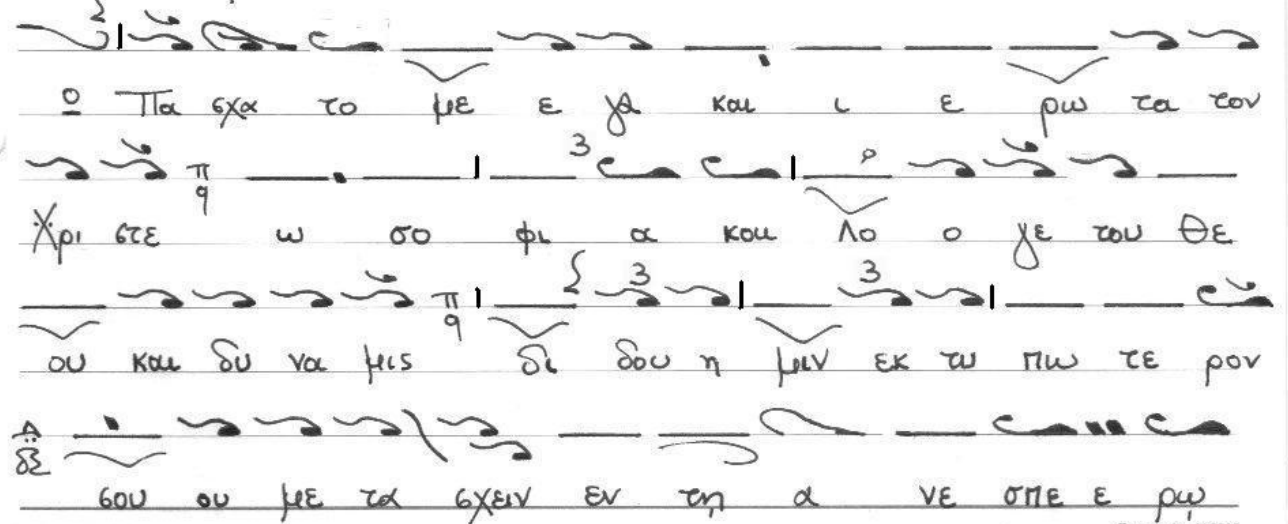 ο Πα σχα το με ε γα και ι ε ρω τα τον
Χρι στε ω σο φι α και Λο ο γε του Θε
ου και δυ να μις δι δου η μιν εκ τυ πω τε ρον
σου ου με τα σχειν εν τη α νε σπε ε ρω